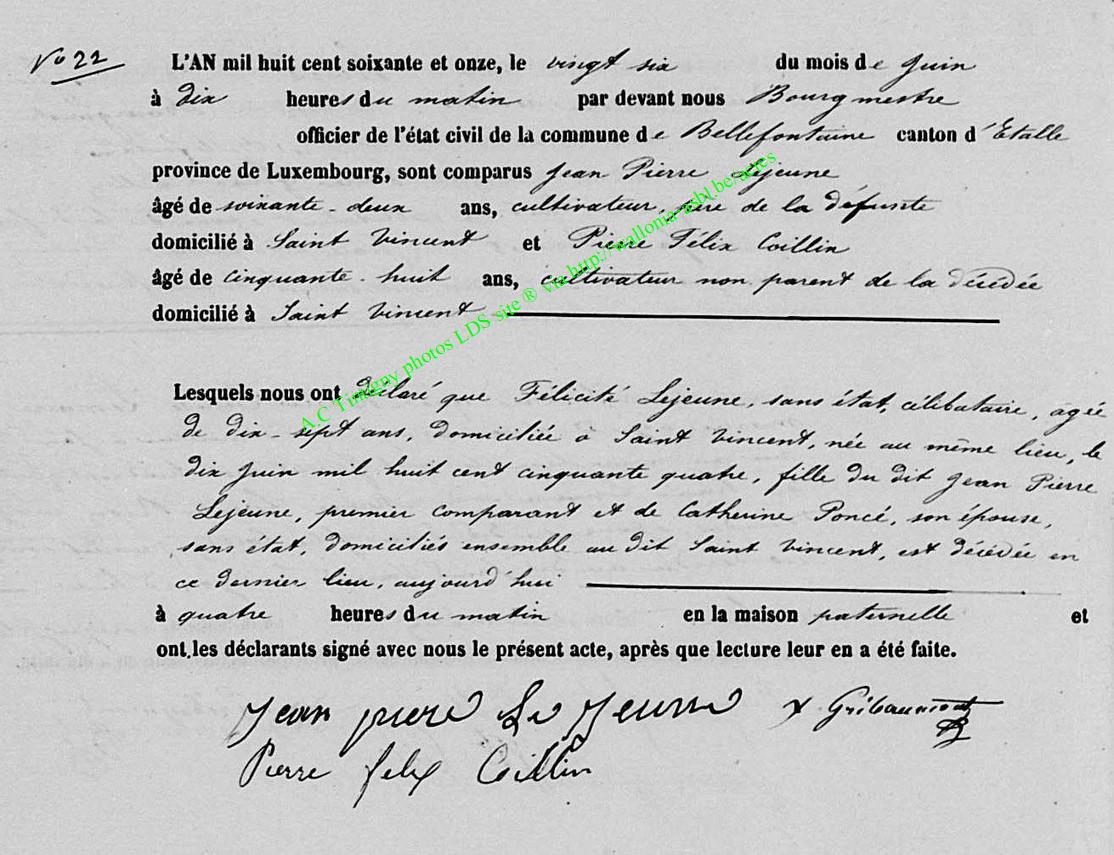 No 22
L'AN mil huit cent soixante et onze, le vingt six du mois de Juin
à dix heures du matin par devant nous Bourgmestre
officier de l'état civil de la commune de Bellefontaine canton d'Etalle
province de Luxembourg, sont comparus Jean Pierre Lejeune
âgé de soixante-deux ans, cultivateur, père de la défunte
domicilié à Saint Vincent et Pierre Félix Coillin
âgé de cinquante-huit ans, cultivateur non parent de la décédée
domicilié à Saint Vincent
Lesquels nous ont déclaré que Félicité Lejeune, sans état, célibataire, agée
de dix-sept ans, domiciliée à Saint Vincent, née au même lieu, le
dix Juin mil huit cent cinquante quatre, fille du dit Jean Pierre
Lejeune, premier comparant et de Catherine Poncé, son épouse,
sans état, domiciliés ensemble au dit Saint Vincent, est décédée en
ce dernier lieu, aujourd'hui
à quatre heures du matin en la maison paternelle et
ont les déclarants signé avec nous le présent acte, après que lecture leur en a été faite.
Jean piere Le Jeune Gribaumont
Pierre felix Coillin
A.C Timigny photos LDS site ® via http://wallonia-asbl.be/actes